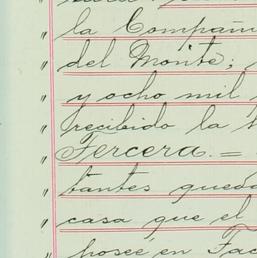 " la Compañí
" del Monte;
" y ocho mil
" recibido la
" Tercera. =
" tantes queda
" casa que el
" posee en Tac